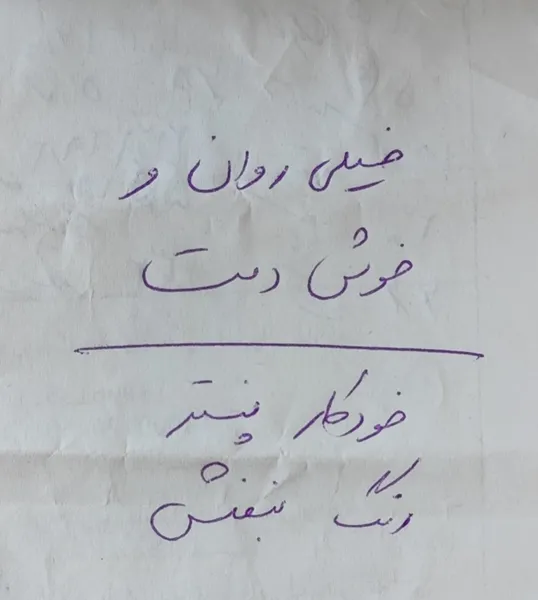 خیلی روان و
خوش دست
خودکار پنتر
رنگ بنفش